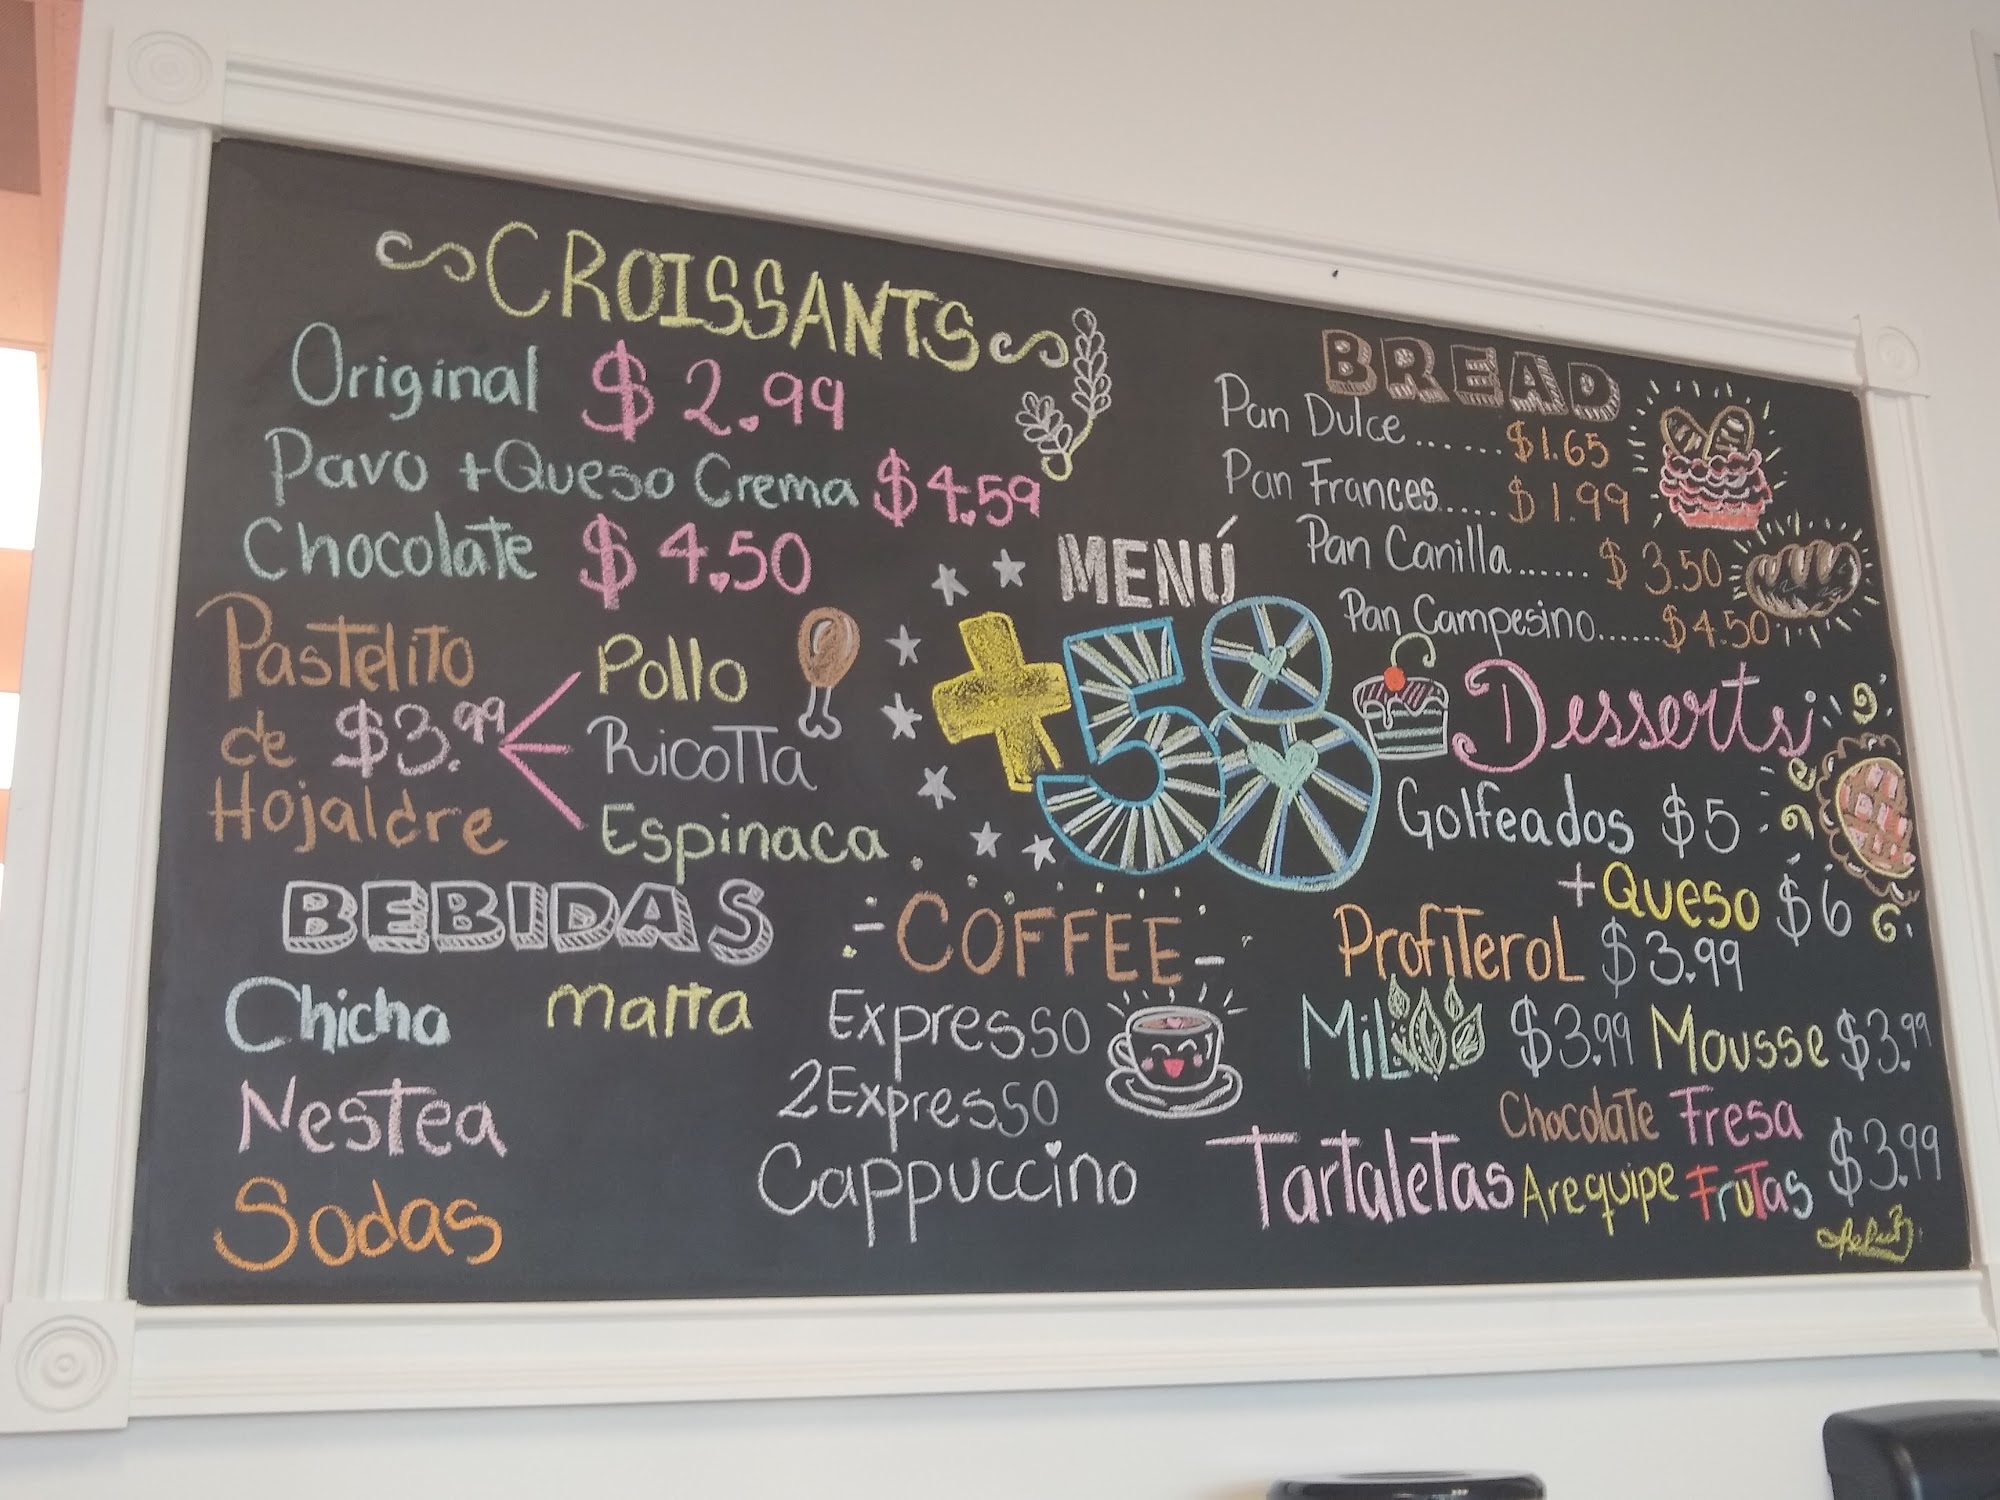 CROISSANTS
Original $2.99
Pavo +Queso Crema $4.59
Chocolate $4.50
Pastelito
de $3.99
Hojaldre
Pollo
Ricotta
Espinaca
BEBIDAS
Chicha Malta
Nestea
Sodas
MENÚ
+58
COFFEE
Expresso
2Expresso
Cappuccino
BREAD
Pan Dulce......$1.65
Pan Frances.....$1.99
Pan Canilla......$3.50
Pan Campesino......$4.50
Desserts
Golfeados $5
+Queso $6
Profiterol $3.99
Mil $3.99 Mousse $3.99
Tartaletas Chocolate Fresa
Arequipe Frutas $3.99